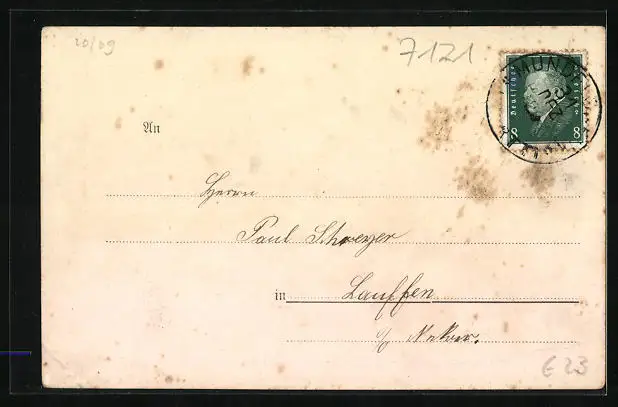 20/09
7121
Deutsches Reich
8 8
An
Herrn
Paul Schweyer
in Lauffen
a/ Neckar.
E 23